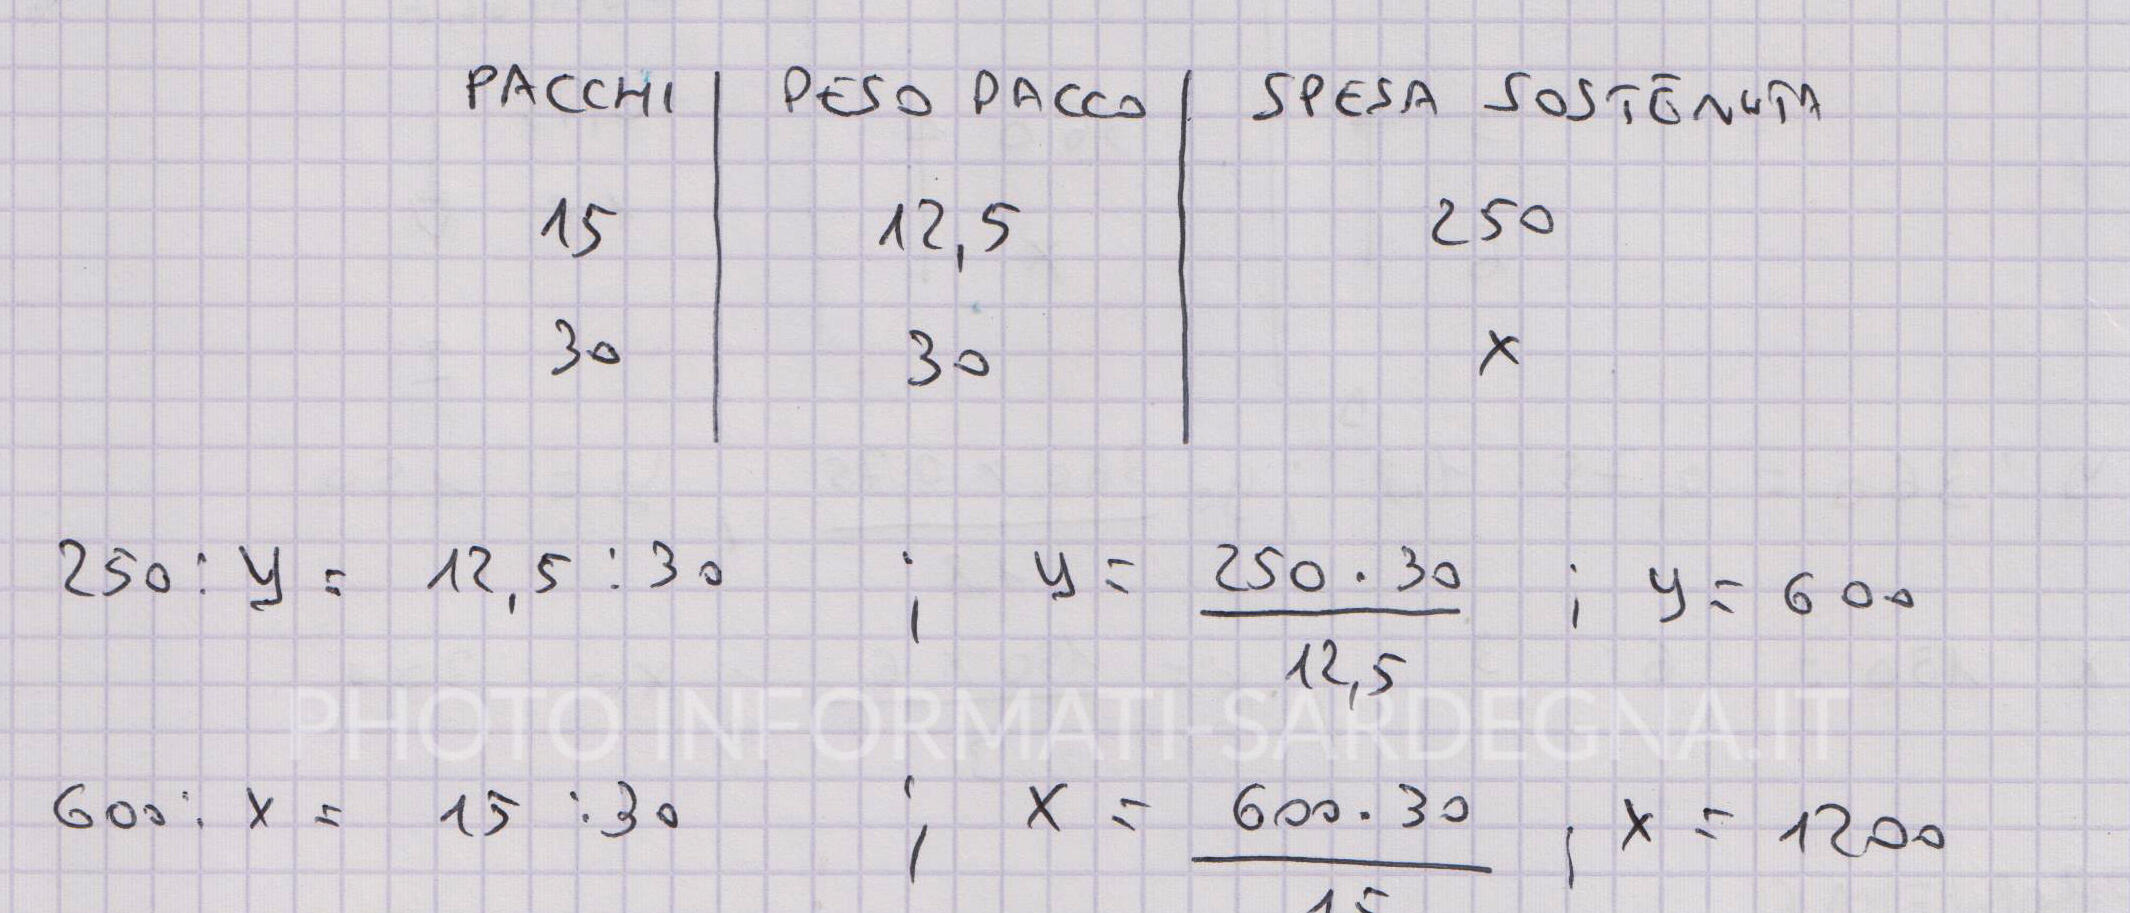 PACCHI | PESO PACCO | SPESA SOSTENUTA
15 | 12,5 | 250
30 | 30 | x
250 : y = 12,5 : 30 ; y = 250 . 30 / 12,5 ; y = 600
PHOTO INFORMATI-SARDEGNA.IT
600 : x = 15 : 30 ; x = 600 . 30 / 15 ; x = 1200